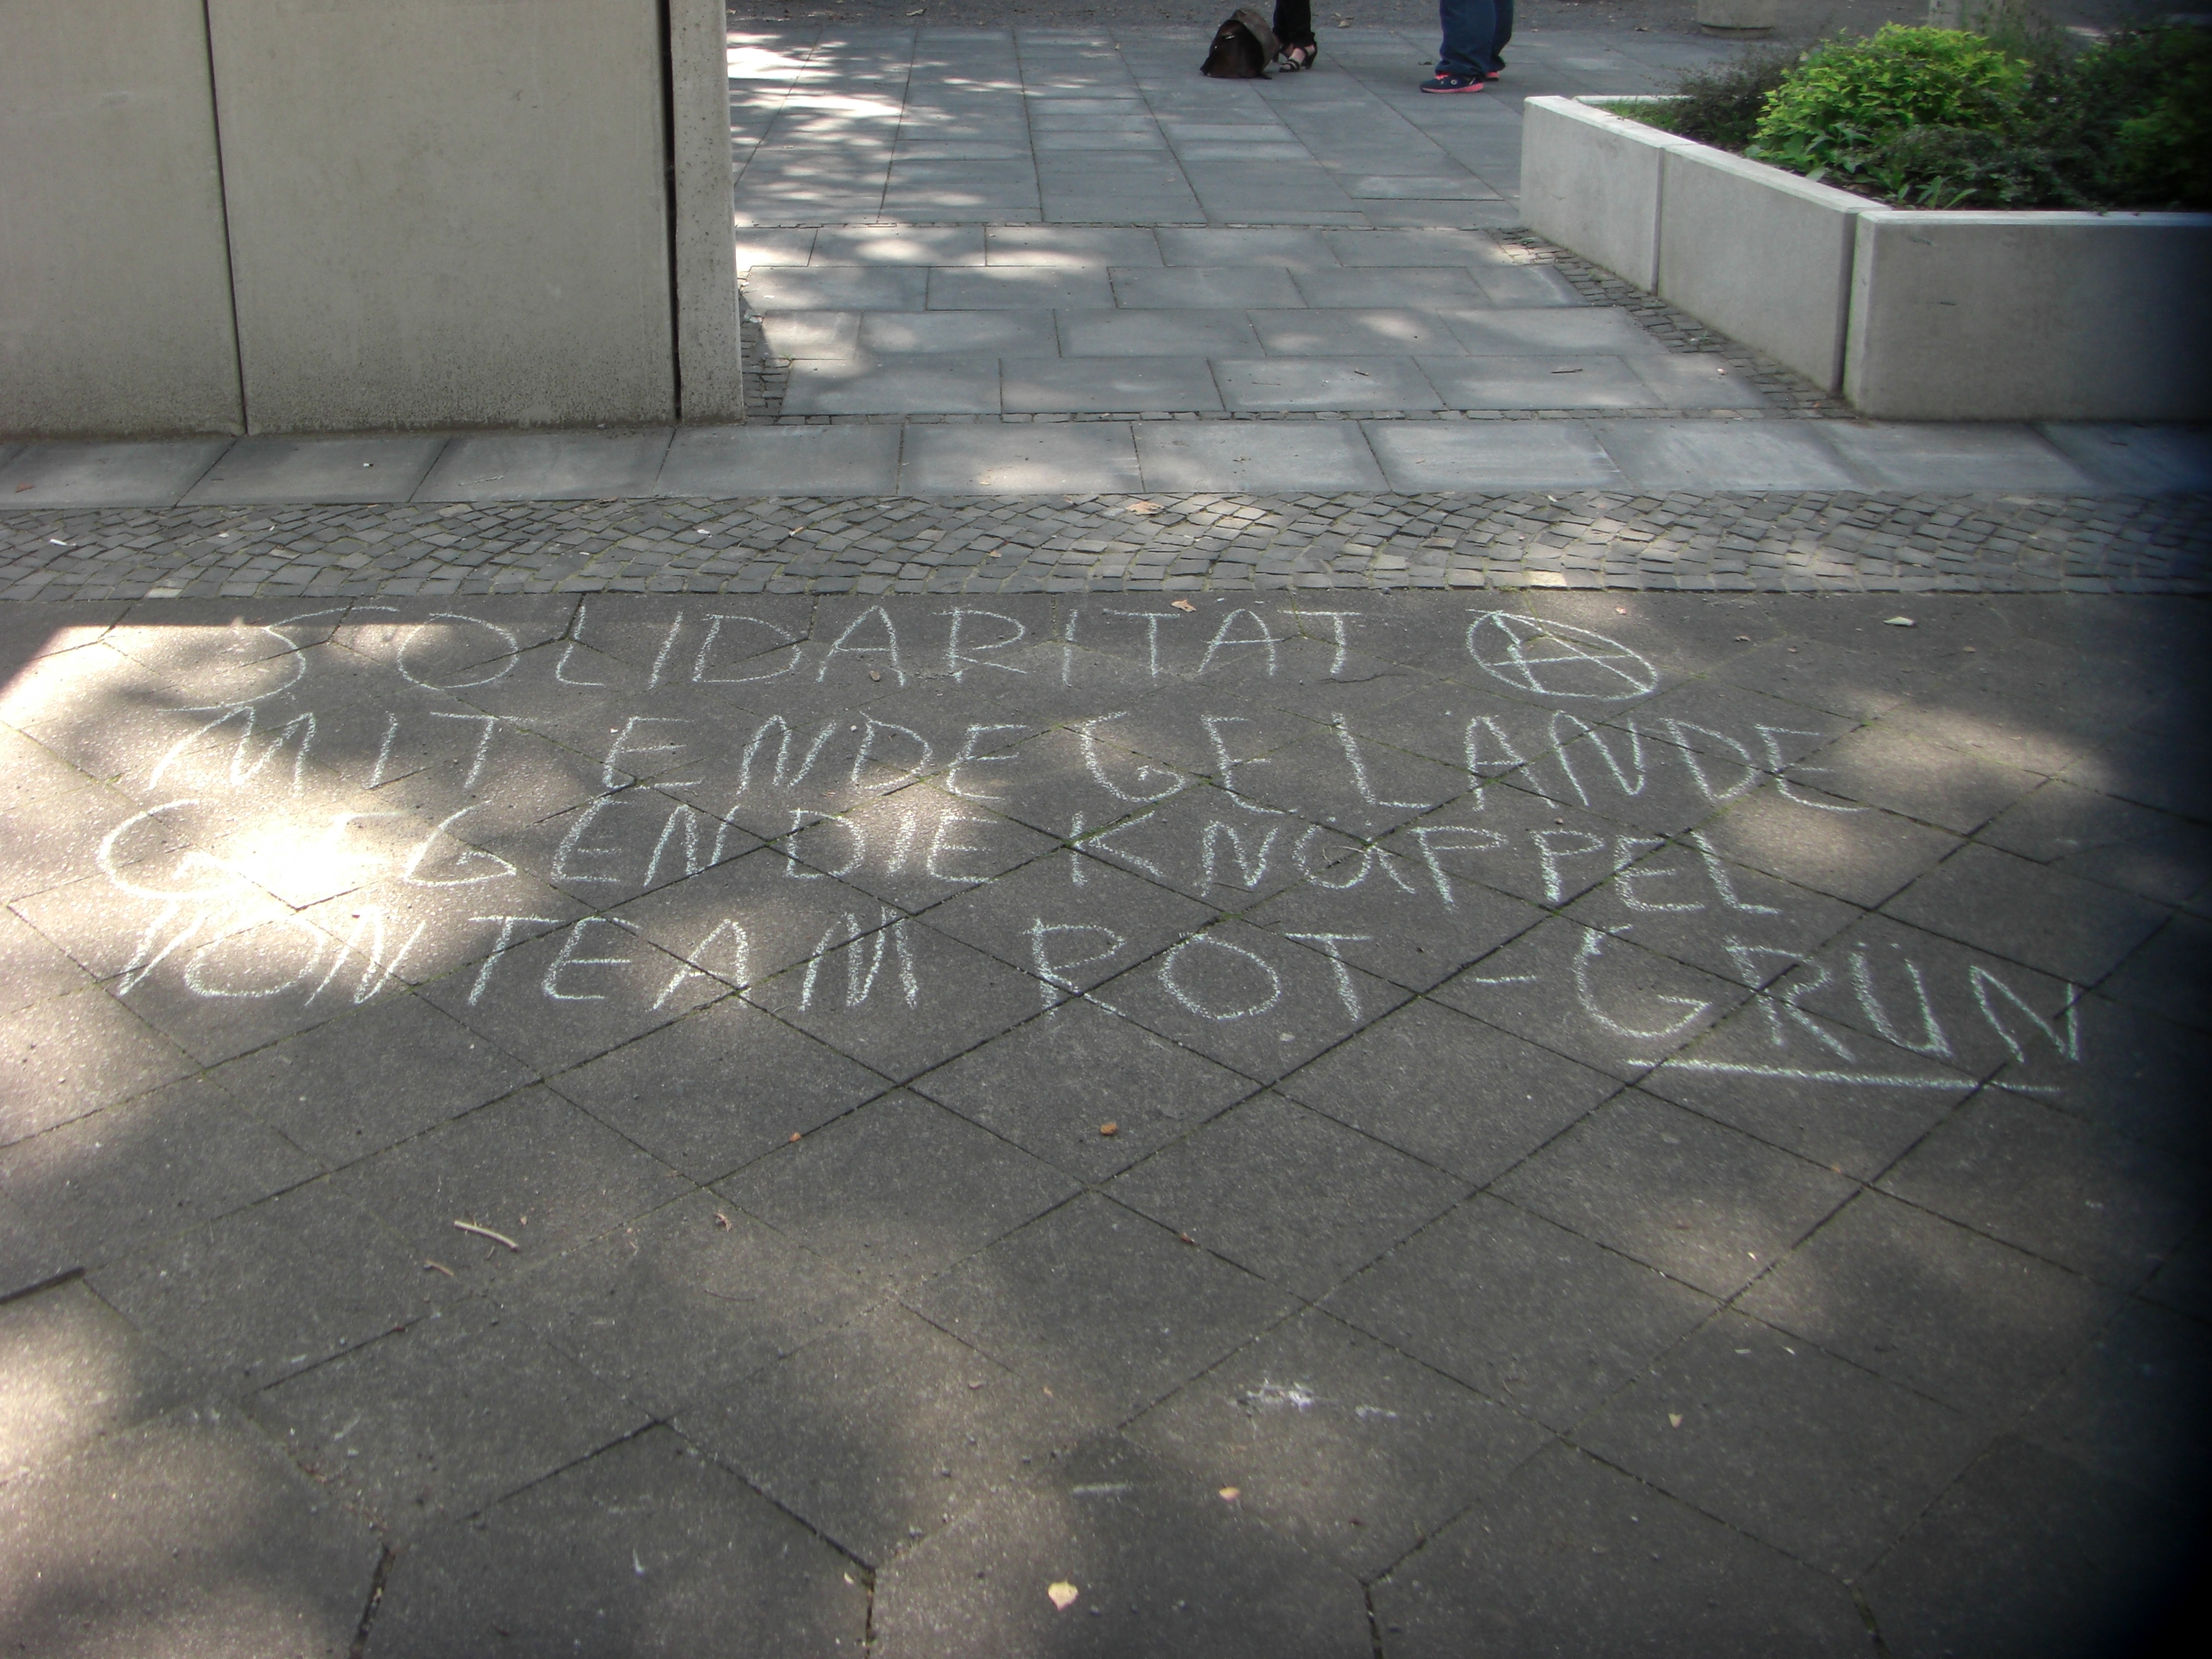 SOLIDARITAT Ⓐ
MIT ENDE GELANDE
GEGEN DIE KNÜPPEL
VON TEAM ROT-GRÜN